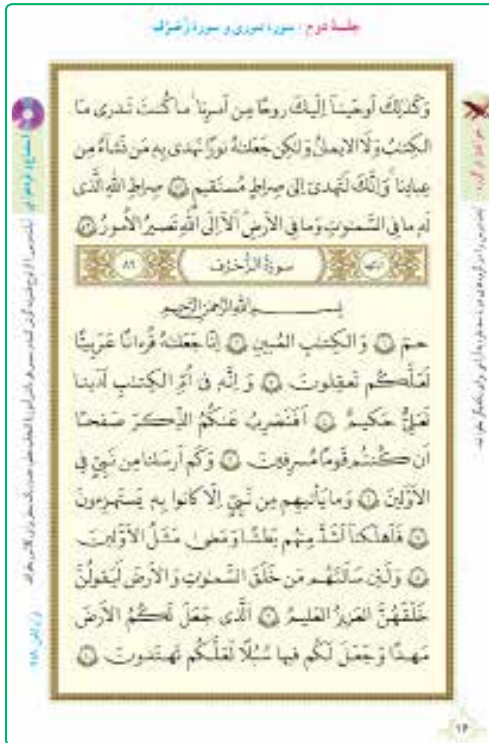 جلسهٔ دوم : سورهٔ شوری و سورهٔ زُخرُف
وَ كَذٰلِكَ اَوحَينا اِلَيكَ روحًا مِن اَمرِنا ما كُنتَ تَدرى مَا
الكِتٰبُ وَ لَا الايمانُ وَ لٰكِن جَعَلنٰهُ نورًا نَهدى بِه مَن نَشاءُ مِن
عِبادِنا وَ اِنَّكَ لَتَهدى اِلىٰ صِراطٍ مُستَقيمٍ ۵۲ صِراطِ اللهِ الَّذى
لَه ما فِى السَّمٰوٰتِ وَ ما فِى الاَرضِ اَلا اِلَى اللهِ تَصيرُ الاُمورُ ۵۳
سورة الزخرف ۸۹
بِسمِ اللهِ الرَّحمٰنِ الرَّحيمِ
حم ۱ وَ الكِتٰبِ المُبينِ ۲ اِنّا جَعَلنٰهُ قُرءٰنًا عَرَبِيًّا
لَعَلَّكُم تَعقِلونَ ۳ وَ اِنَّه فى اُمِّ الكِتٰبِ لَدَينا
لَعَلِىٌّ حَكيمٌ ۴ اَفَنَضرِبُ عَنكُمُ الذِّكرَ صَفحًا
اَن كُنتُم قَومًا مُسرِفينَ ۵ وَ كَم اَرسَلنا مِن نَبِىٍّ فِى
الاَوَّلينَ ۶ وَ ما يَأتيهِم مِن نَبِىٍّ اِلّا كانوا بِه يَستَهزِءونَ
۷ فَاَهلَكنا اَشَدَّ مِنهُم بَطشًا وَ مَضىٰ مَثَلُ الاَوَّلينَ
۸ وَ لَئِن سَاَلتَهُم مَن خَلَقَ السَّمٰوٰتِ وَ الاَرضَ لَيَقولُنَّ
خَلَقَهُنَّ العَزيزُ العَليمُ ۹ اَلَّذى جَعَلَ لَكُمُ الاَرضَ
مَهدًا وَ جَعَلَ لَكُم فيها سُبُلًا لَعَلَّكُم تَهتَدونَ ۱۰
۱۴